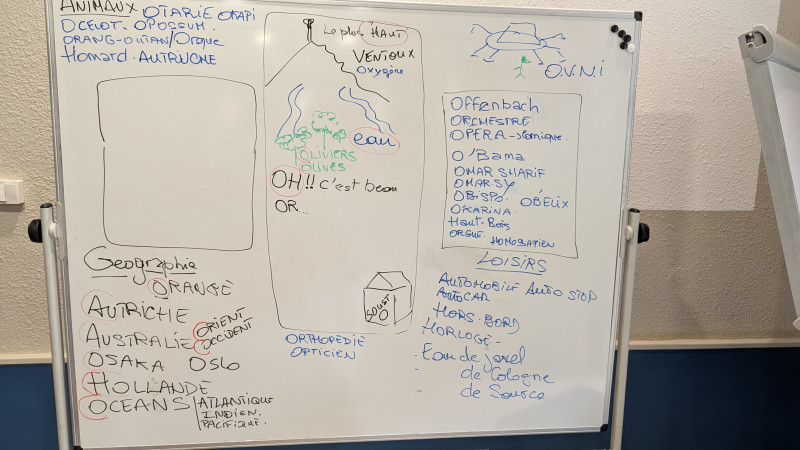 ANIMAUX OTARIE OKAPI
OCELOT. OPOSSUM.
ORANG-OUTAN/Orque
Homard. AUTRUCHE
Le plus HAUT
VENTOUX
Oxygène
eau
OLIVIERS
OLIVES
OH!! c'est beau
OR...
O.V.N.I
Offenbach
ORCHESTRE
OPERA-Comique.
O'Bama
OMAR SHARIF
OMAR SY
OBISPO. OBÉLIX
OKARINA.
Haut-Bois
ORGUE. HOMOSAPIEN
Geographie
ORANGE
AUTRICHE
AUSTRALIE ORIENT
OCCIDENT
OSAKA OSLO
HOLLANDE
OCEANS ATLANTIQUE
INDIEN.
PACIFIQUE.
ORTHOPÉDIE
OPTICIEN
LOISIRS
AUTOMOBILE AUTO STOP
AUTOCAR
HORS-BORD
HORLOGE-
Eau de javel
de Cologne
de Source